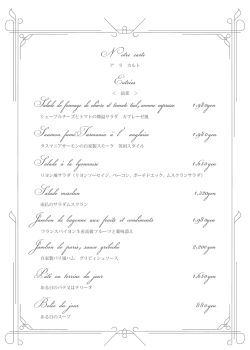 Notre carte
ア ラ カルト
Entrées
＜ 前菜 ＞
Salade de fromage de chèvre et tomate tiède, comme caprese 1,980yen
シェーブルチーズとトマトの温製サラダ カプレーゼ風
Saumon fumé Tasmanie à l' anglais 1,980yen
タスマニアサーモンの自家製スモーク 英国スタイル
Salade à la lyonnaise 1,650yen
リヨン風サラダ（リヨンソーセイジ、ベーコン、ポーチドエッグ、ムスクランサラダ）
Salade mesclun 1,320yen
南仏のサラダムスクラン
Jambon de bayonne aux fruits et condiments 1,980yen
フランスバイヨン生長期フルーツと薬味添え
Jambon de paris, sauce gribiche 2,200yen
自家製パリ風ハム グリビィシュソース
Pâté en terrine du jour 1,650yen
ある日のパテ又はテリーヌ
Bol du jour 880yen
ある日のスープ